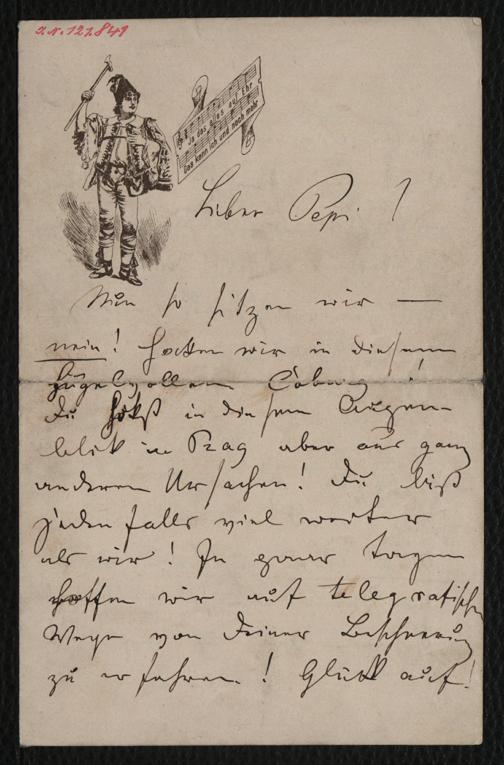 I.N. 121.841
Ja das alles auf Ehr
Das kann ich und noch mehr
Lieber Pepi!
Nun so sitzen wir —
nein! Hocken wir in diesem
hügelvollem Coburg!
Du hokst in diesem Augen
blik in Prag aber aus ganz
anderen Ursachen! Du bist
jeden falls viel weiter
als wir! In paar Tagen
hoffen wir auf telegratischen
Wege von Deiner Bescherung
zu erfahren! Glück auf!